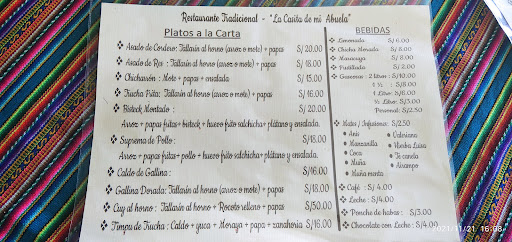 Restaurante Tradicional - "La Casita de mi Abuela"
Platos a la Carta
Asado de Cordero: Tallarin al horno (arroz o mote) + papas S/ 20.00
Asado de Res : Tallarin al horno (arroz o mote) + papas S/ 18.00
Chicharrón : Mote + papas + ensalada S/ 15.00
Trucha Frita: Tallarin al horno (arroz o mote) + papas S/ 16.00
Bisteck Montado : S/ 20.00
Arroz + papas fritas+ bisteck + huevo frito salchicha+ plátano y ensalada.
Suprema de Pollo : S/18.00
Arroz + papas fritas+pollo + huevo frito salchicha+ plátano y ensalada.
Caldo de Gallina : S/16.00
Gallina Dorada: Tallarin al horno (arroz o mote) + papas S/18.00
Cuy al horno: Tallarin al horno + Rocoto relleno + papas S/50.00
Timpu de Trucha : Caldo + yuca + Moraya + papa + zanahoria S/16.00
BEBIDAS
Limonada S/ 6.00
Chicha Morada S/ 8.00
Maracuya S/ 8.00
Frutillada S/ 2.00
Gaseosas : 2 Litros : S/10.00
1 ½ : S/8.00
1 Litro : S/6.00
½ Litro: S/3.00
Personal: S/2.50
Mates / Infusiones: S/2.50
Anis
Manzanilla
Coca
Muña
Muña menta
Valeriana
Hierba Luisa
Te canela
Airampo
Café : S/ 4.00
Leche : S/ 4.00
Ponche de habas : S/3.00
Chocolate con Leche : S/4.00
2021/11/21 16:08